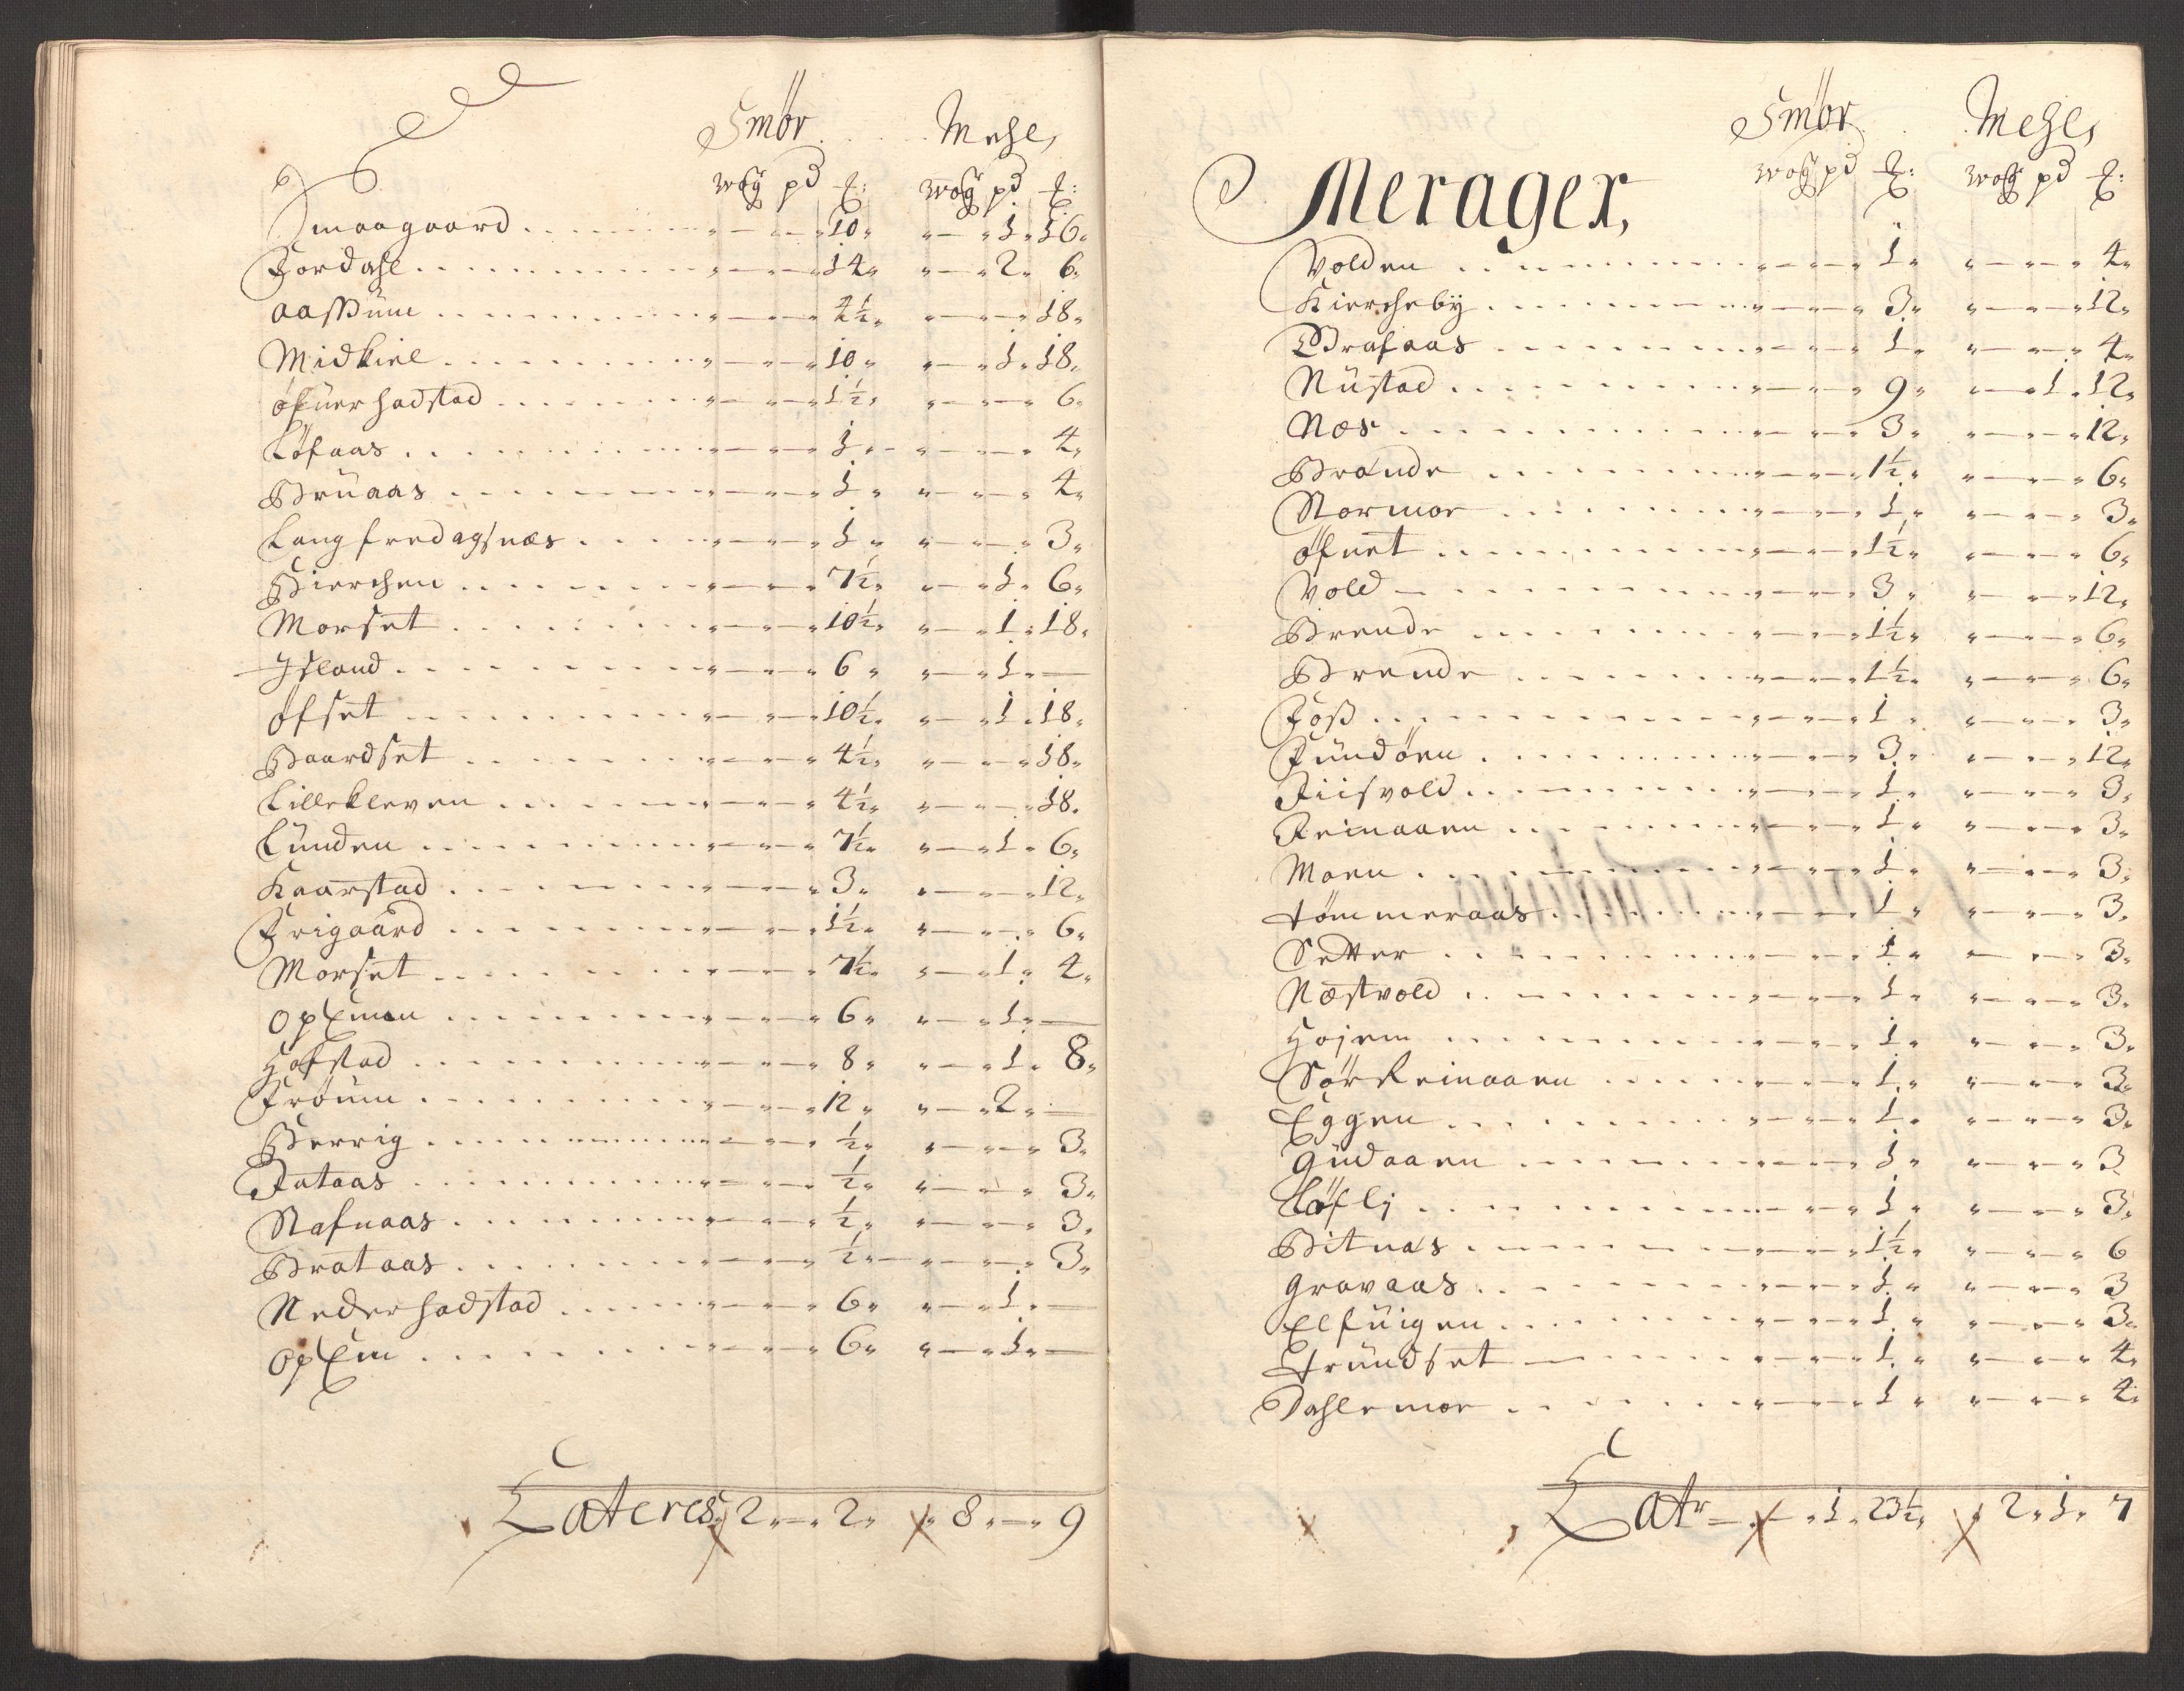 Smör Mehl,
wog pd ℔: wog pd ℔:
Smaagaard 10 1 16
Fordahl 14 2 6
aassum 4½ 18
Midkiel 10 1 18
öfuerhadstad 1½ 6
Löfaas 1 4
Bruaas 1 4
Langfredagsnæs 1 3
Bierchen 7½ 1 6
Morset 10½ 1 18
Island 6 1 —
öfset 10½ 1 18
Baardset 4½ 18
Lillekleven 4½ 18
Lunden 7½ 1 6
Kaarstad 3 12
Frigaard 1½ 6
Morset 7½ 1 4
Opemm 6 1 —
Hofstad 8 1 8
Fröüm 12 2 —
Berrig ½ 3
Fataas ½ 3
Stafnaas ½ 3
Brataas ½ 3
Nederhadstad 6 1 —
Opem 6 1 —
Lateres 2 — 2 8 — 9
Smör Mehl,
wog pd ℔: wog pd ℔:
Merager,
Volden 1 4
Kiercheby 3 12
Brafaas 1 4
Nüstad 9 1 12
Næs 3 12
Brænde 1½ 6
Stormoe 1 3
öfuet 1½ 6
Vold 3 12
Brende 1½ 6
Brende 1½ 6
Foss 1 3
Fundöen 3 12
Fiisvold 1 3
Reinaaen 1 3
Moen 1 3
tömmeraas 1 3
Setter 1 3
Næstvold 1 3
Hojem 1 3
Sör Reinaaen 1 3
Eggen 1 3
Gudaaen 1 3
Löfli 1 3
Bitnæs 1½ 6
Gravaas 1 3
Elfuigen 1 3
trundset 1 4
Dahlemoe 1 4
Latr — 1 23½ 2 1 7